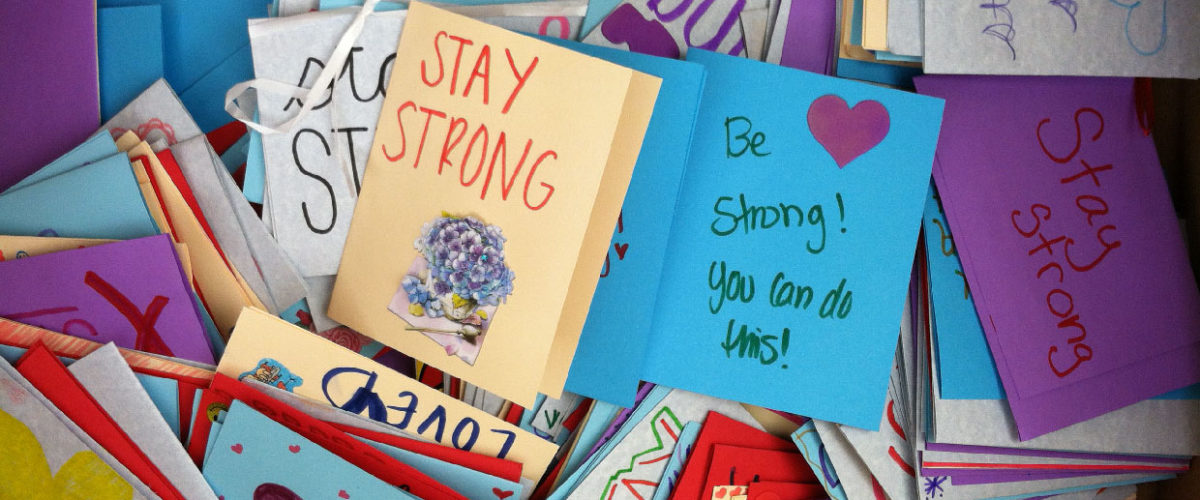 STAY
STRONG
Be
strong!
you can do
this!
Stay
strong
LOVED